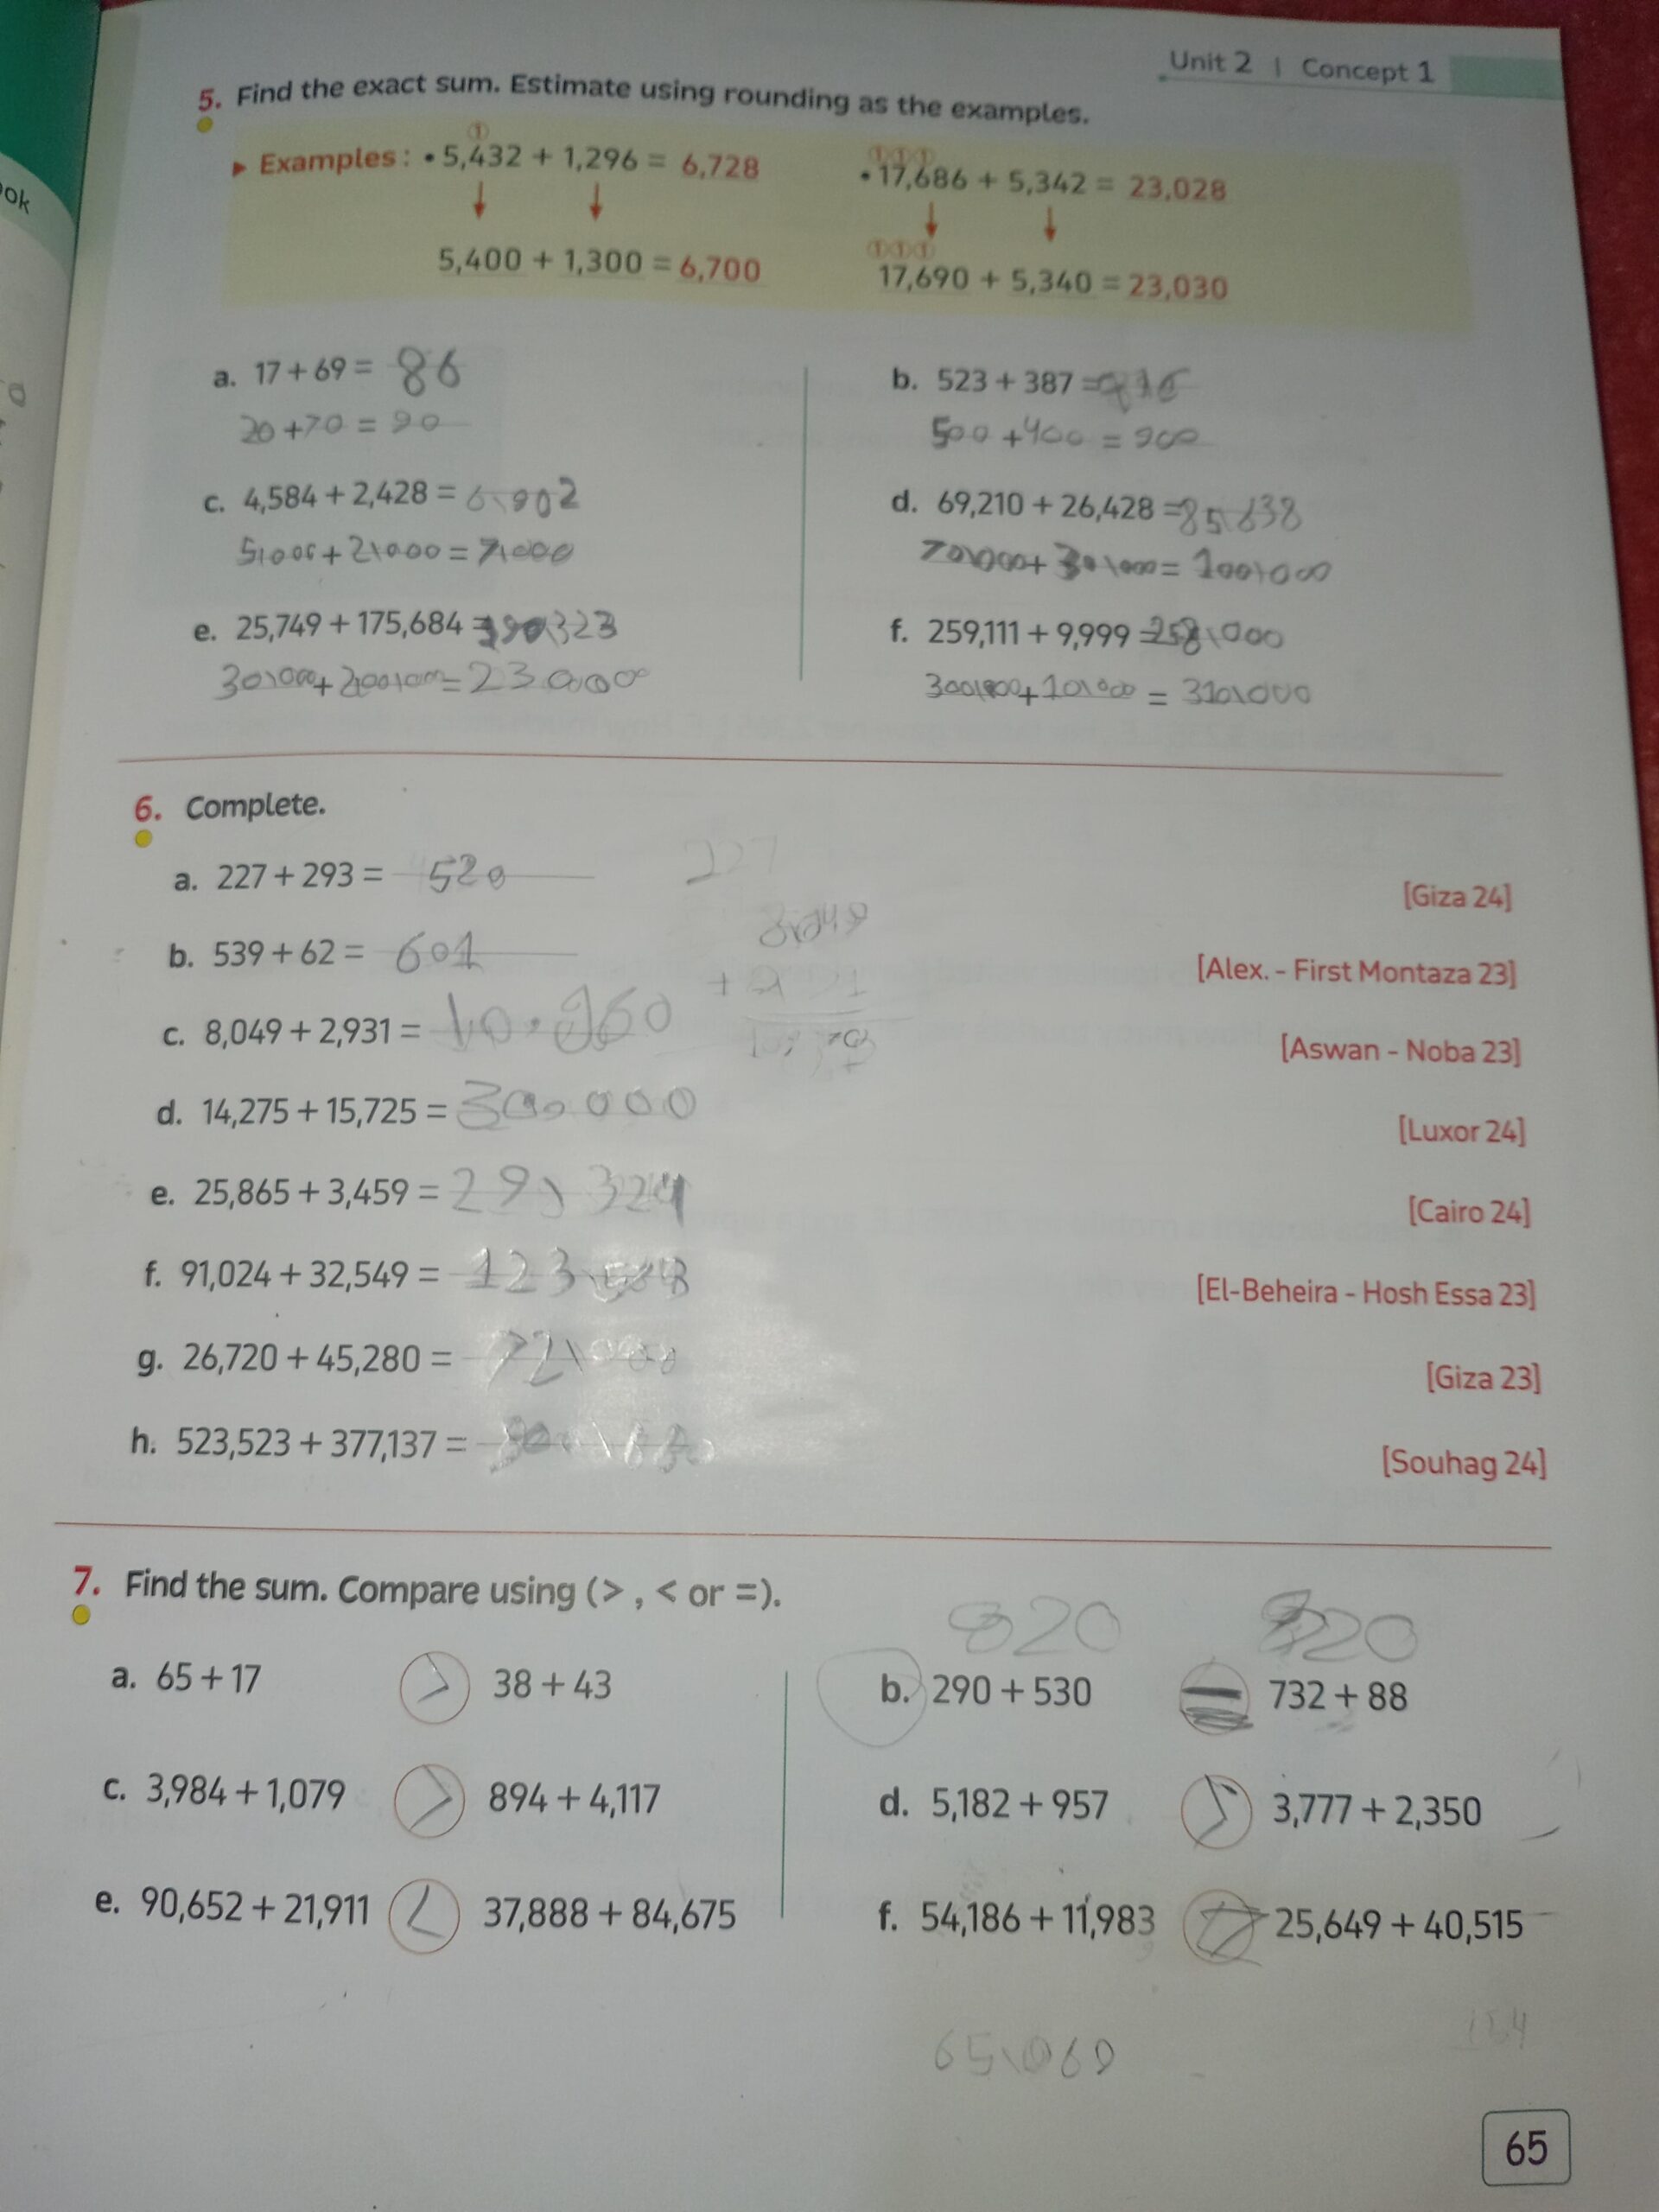 Unit 2 | Concept 1
ok
5. Find the exact sum. Estimate using rounding as the examples.
① ①①①
▶ Examples : • 5,432 + 1,296 = 6,728 • 17,686 + 5,342 = 23,028
①①①
5,400 + 1,300 = 6,700 17,690 + 5,340 = 23,030
a. 17 + 69 = 86 b. 523 + 387 =
20 + 70 = 90 500 + 400 = 900
c. 4,584 + 2,428 = 6\902 d. 69,210 + 26,428 = 85\638
5\000 + 2\000 = 7\000 70\000 + 30\000 = 100\000
e. 25,749 + 175,684 = f. 259,111 + 9,999 = 258\000
30\000 + 200\000 = 230000 300\000 + 10\000 = 310\000
6. Complete.
227
a. 227 + 293 = 520 [Giza 24]
8\049
b. 539 + 62 = 601 [Alex. - First Montaza 23]
c. 8,049 + 2,931 = [Aswan - Noba 23]
d. 14,275 + 15,725 = [Luxor 24]
e. 25,865 + 3,459 = 29\324 [Cairo 24]
f. 91,024 + 32,549 = [El-Beheira - Hosh Essa 23]
g. 26,720 + 45,280 = 72\000 [Giza 23]
h. 523,523 + 377,137 = [Souhag 24]
7. Find the sum. Compare using (> , < or =).
820 820
a. 65 + 17 > 38 + 43 b. 290 + 530 = 732 + 88
c. 3,984 + 1,079 > 894 + 4,117 d. 5,182 + 957 > 3,777 + 2,350
e. 90,652 + 21,911 < 37,888 + 84,675 f. 54,186 + 11,983 25,649 + 40,515
164
65\060
65